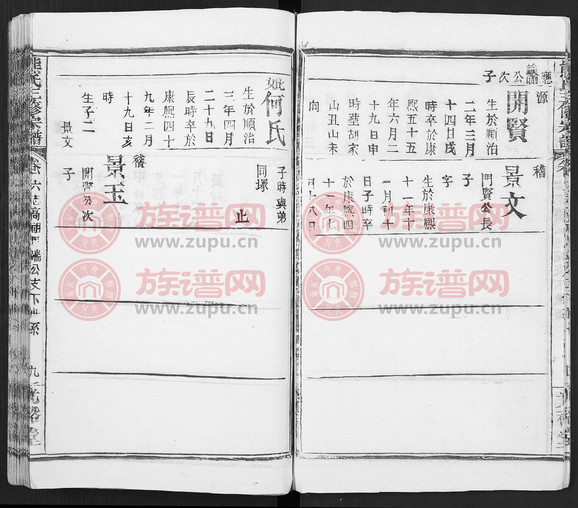 應諧公次
子
源
開賢
生於順治
二年三月
十四日戌
時卒於康
熙五十五
年六月二
十九日申
時葬胡家
山丑山未
向
稽
景文
開賢公長
子 字
生於康熙
十年十
一月初十
日子時卒
於康熙四
十年七
月十八日
妣
何氏
生於順治
三年四月
二十九日
辰時卒於
康熙四十
九年二月
十九日亥
時
生子二
景文
子時與弟
同塚
止
稽
景玉
開賢公次
子
熊氏三修宗譜
卷六
九
族谱网
www.zupu.cn
族谱网
www.zupu.cn
族谱网
www.zupu.cn
族谱网
www.zupu.cn